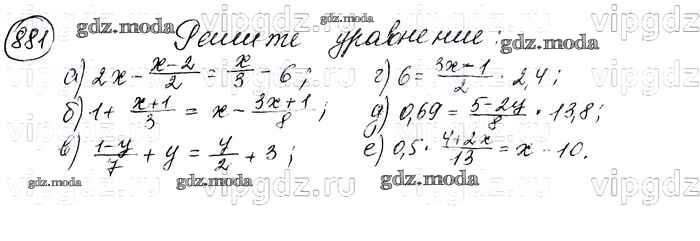 881 Решите уравнение:
а) 2x - (x-2)/2 = x/3 - 6; г) 6 = (3x-1)/2 · 2,4;
б) 1 + (x+1)/3 = x - (3x+1)/8; д) 0,69 = (5-2y)/8 · 13,8;
в) (1-y)/7 + y = y/2 + 3; е) 0,5 · (4+2x)/13 = x - 10.
gdz.moda
gdz.moda
gdz.moda
gdz.moda
gdz.moda
gdz.moda
vipgdz.ru
vipgdz.ru
vipgdz.ru
vipgdz.ru